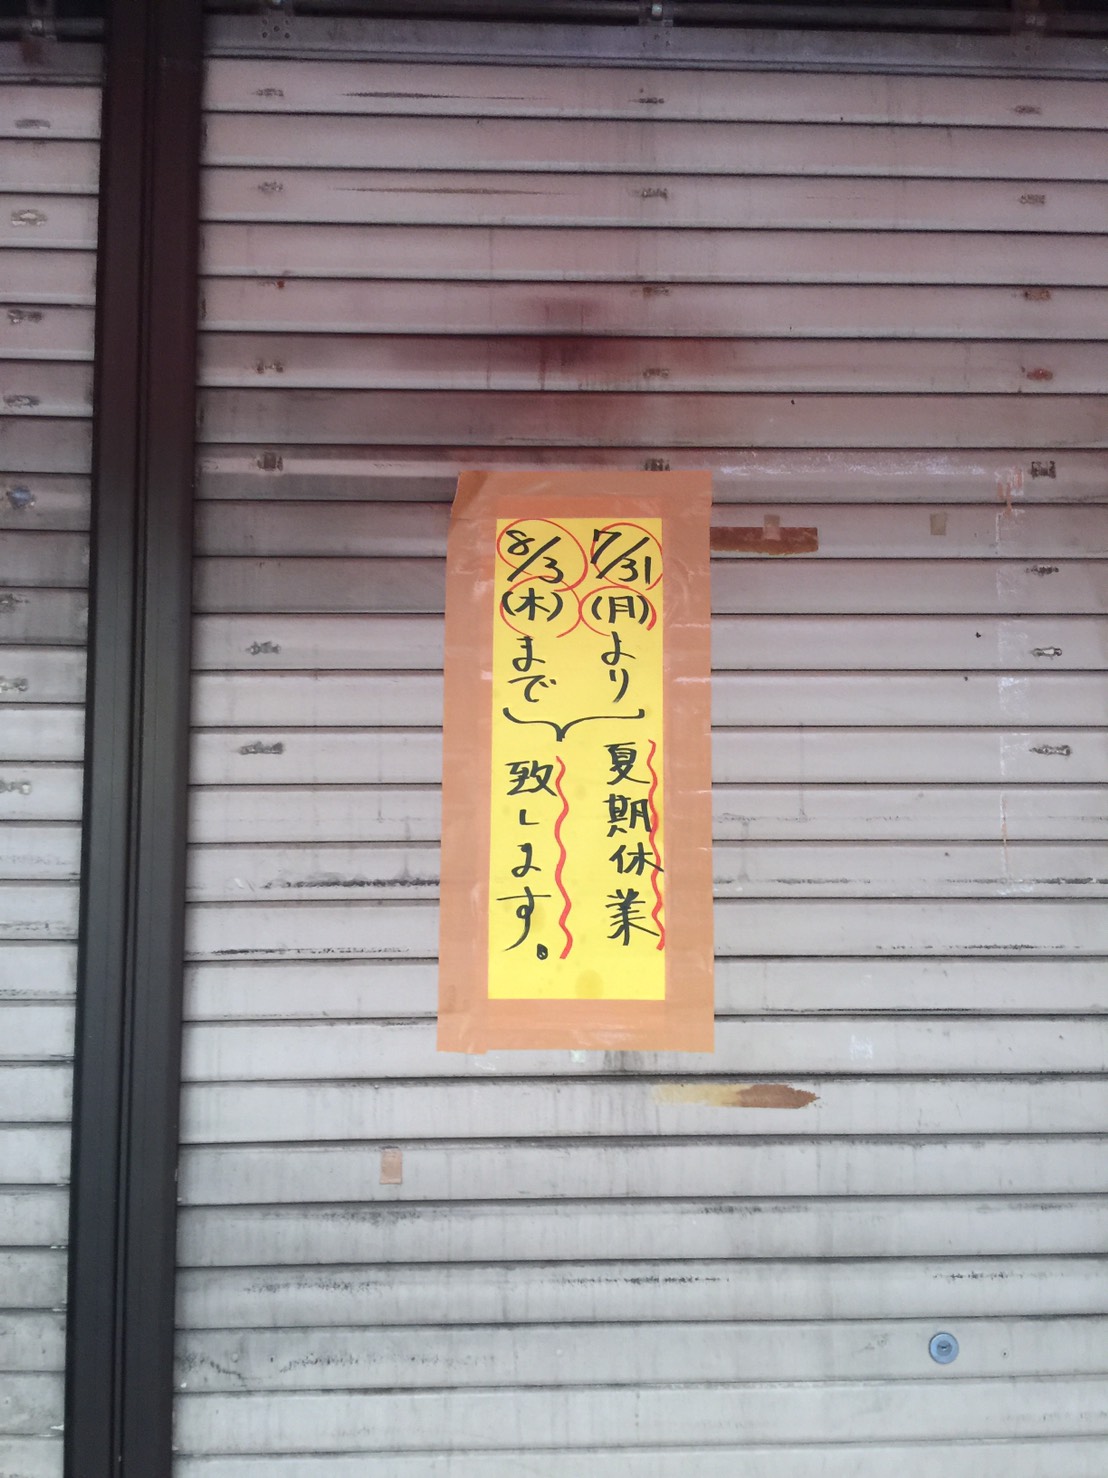 7/31(月)より
8/3(木)まで
夏期休業
致します。